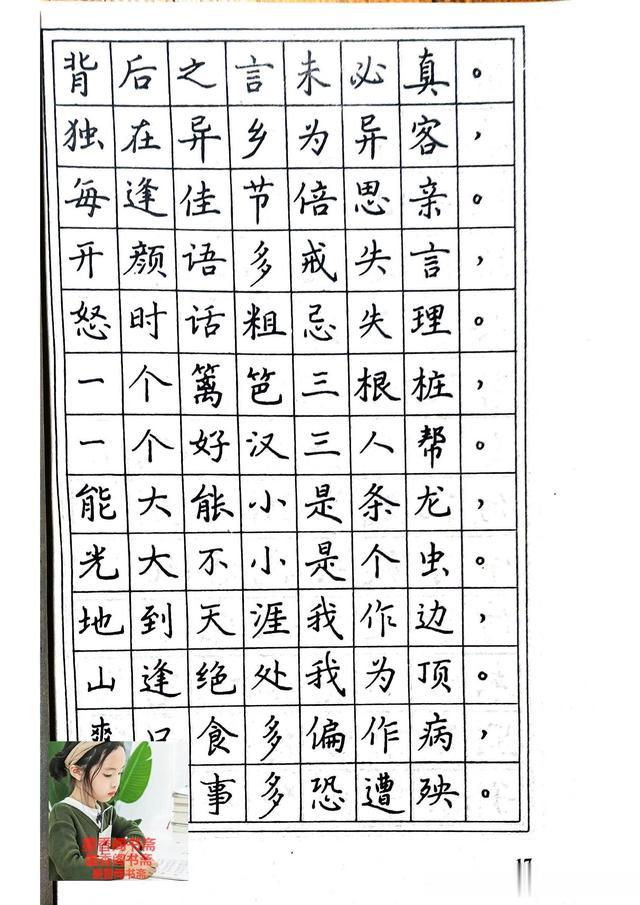 背后之言未必真。
独在异乡为异客，
每逢佳节倍思亲。
开颜语多戒失言，
怒时话粗忌失理。
一个篱笆三根桩，
一个好汉三人帮。
能大能小是条龙，
光大不小是个虫。
地到天涯我作边，
山逢绝处我为顶。
爽口食多偏作病，
事多恐遭殃。
墨香阁书斋
墨香阁书斋
墨香阁书斋
17